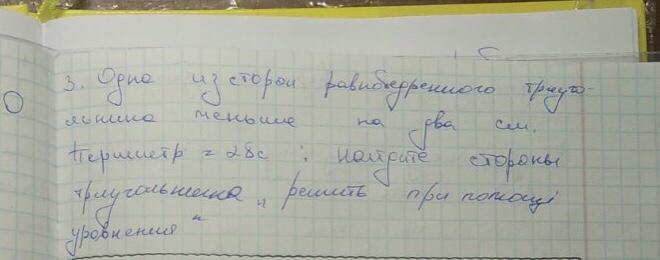 3. Одна из сторон равнобедренного треуго-
льника меньше на два см.
Периметр = 28с : найдите стороны
треугольника „ решить при помощі
уровнения "